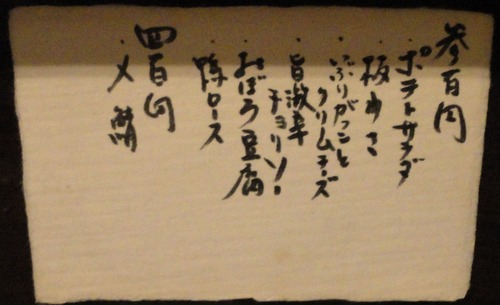 参百円
・ポテトサラダ
・板わさ
・いぶりがっこと
クリームチーズ
・旨激辛
チョリソー
・おぼろ豆腐
・豚ロース
四百円
・〆鯖